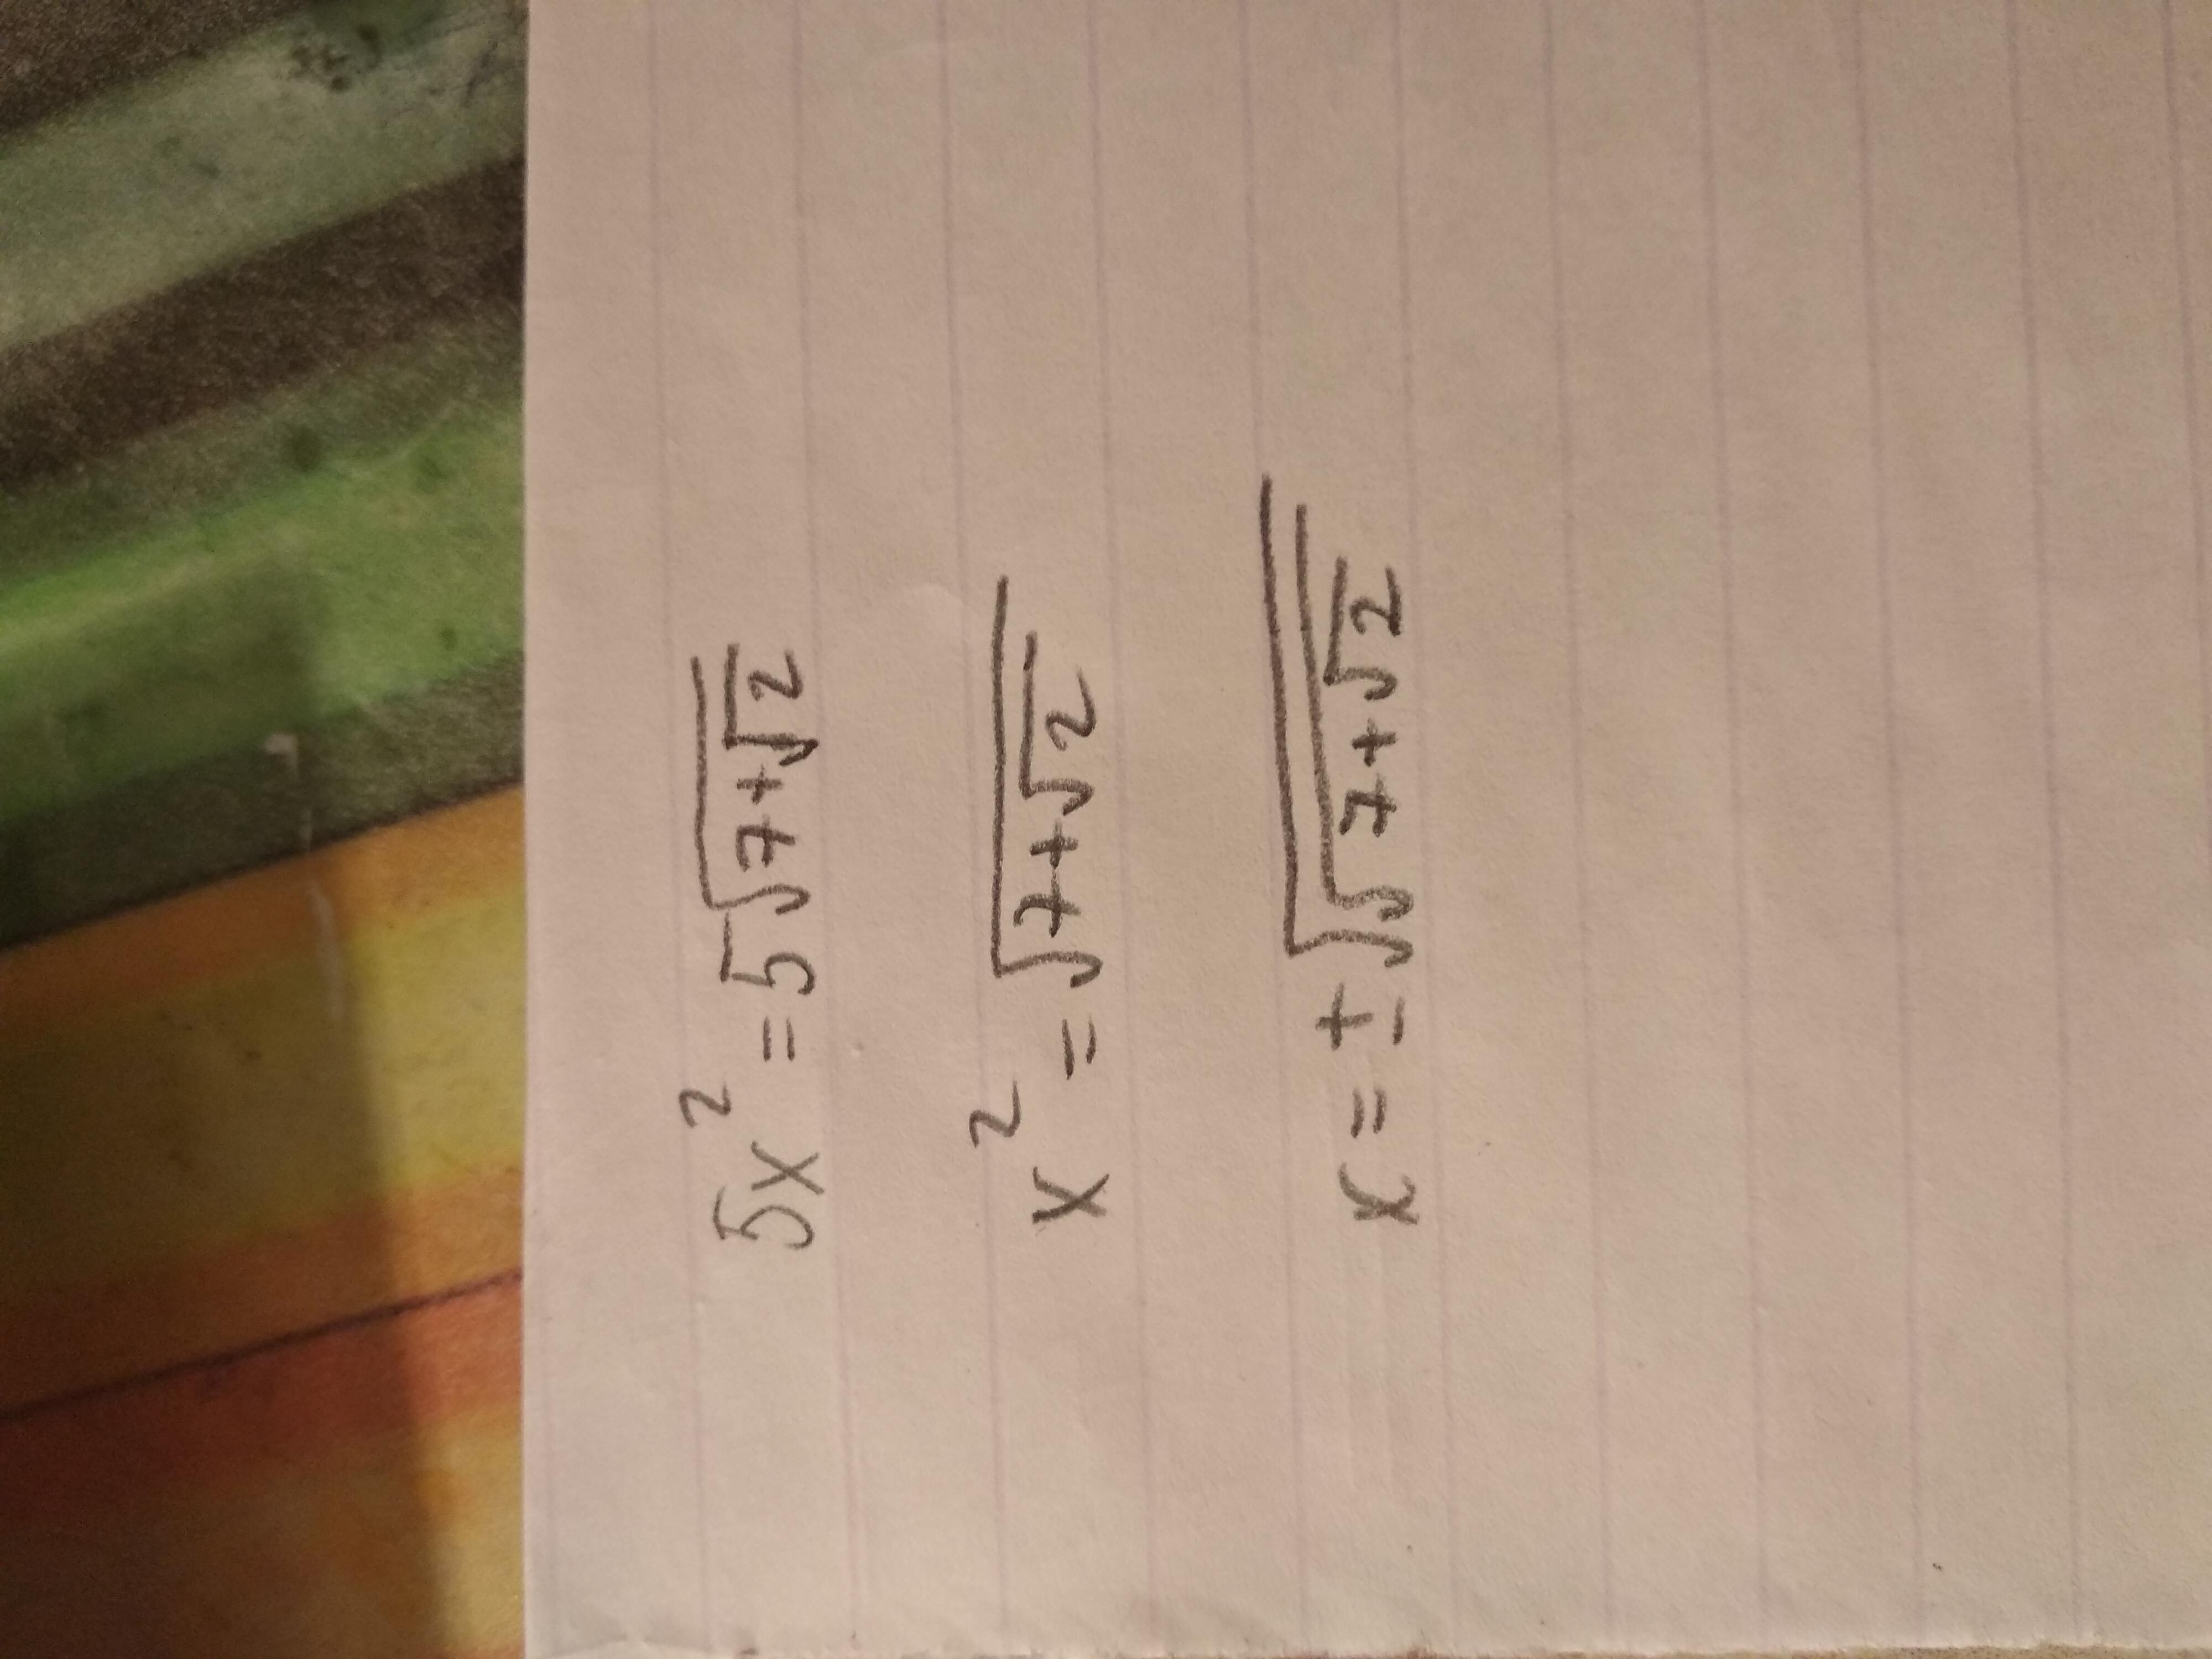 5x² = 5√(7+√2)
x² = √(7+√2)
x = ±√(√(7+√2))